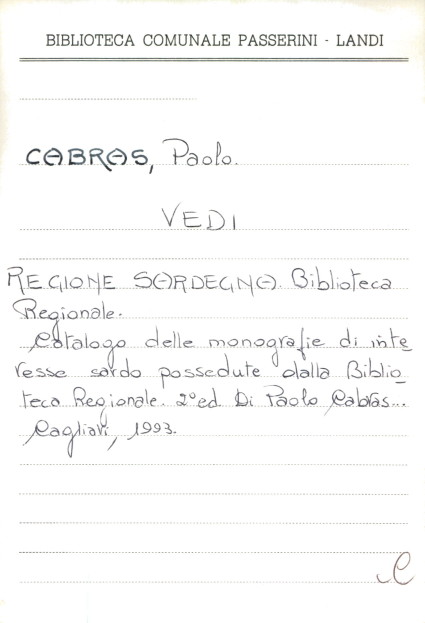 BIBLIOTECA COMUNALE PASSERINI - LANDI
CABRAS, Paolo.
VEDI
REGIONE SARDEGNA. Biblioteca
Regionale.
Catalogo delle monografie di inte_
resse sardo possedute dalla Biblio_
teca Regionale. 2º ed. Di Paolo Cabras...
Cagliari, 1993.